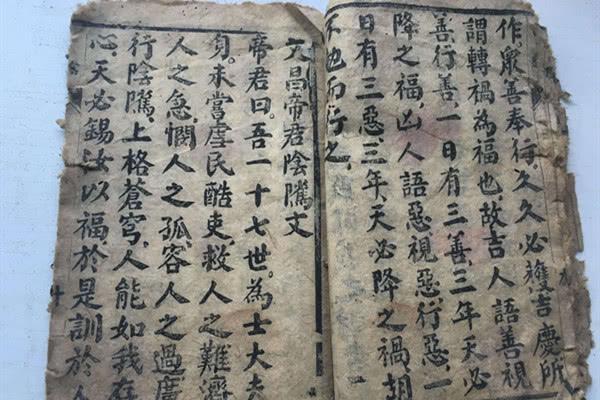 作，眾善奉行，久久必獲吉慶，所
謂轉禍為福也，故吉人語善視
善行善，一日有三善，三年天必
降之福，凶人語惡視惡，行惡，一
日有三惡，三年，天必降之禍，胡
不也而行之，
文昌帝君陰騭文
帝君曰。吾一十七世。為士大夫
身。未嘗虐民酷吏，救人之難，濟
人之急，憫人之孤，容人之過，廣
行陰騭，上格蒼穹，人能如我存
心，天必錫汝以福，於是訓於人